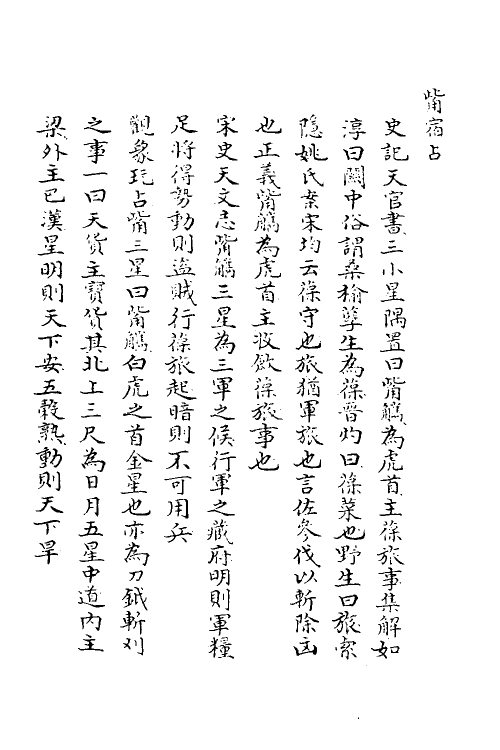 觜宿占
史記天官書三小星隅置曰觜觿為虎首主葆旅事集解如
淳曰關中俗謂桑榆孽生為葆晉灼曰葆菜也野生曰旅索
隱姚氏案宋均云葆守也旅猶軍旅也言佐參伐以斬除凶
也正義觜觿為虎首主收斂葆旅事也
宋史天文志觜觿三星為三軍之候行軍之藏府明則軍糧
足將得勢動則盜賊行葆旅起暗則不可用兵
觀象玩占觜三星曰觜觿白虎之首金星也亦為刀鉞斬刈
之事一曰天貨主寶貨其北上三尺為日月五星中道内主
梁外主巴漢星明則天下安五穀熟動則天下旱